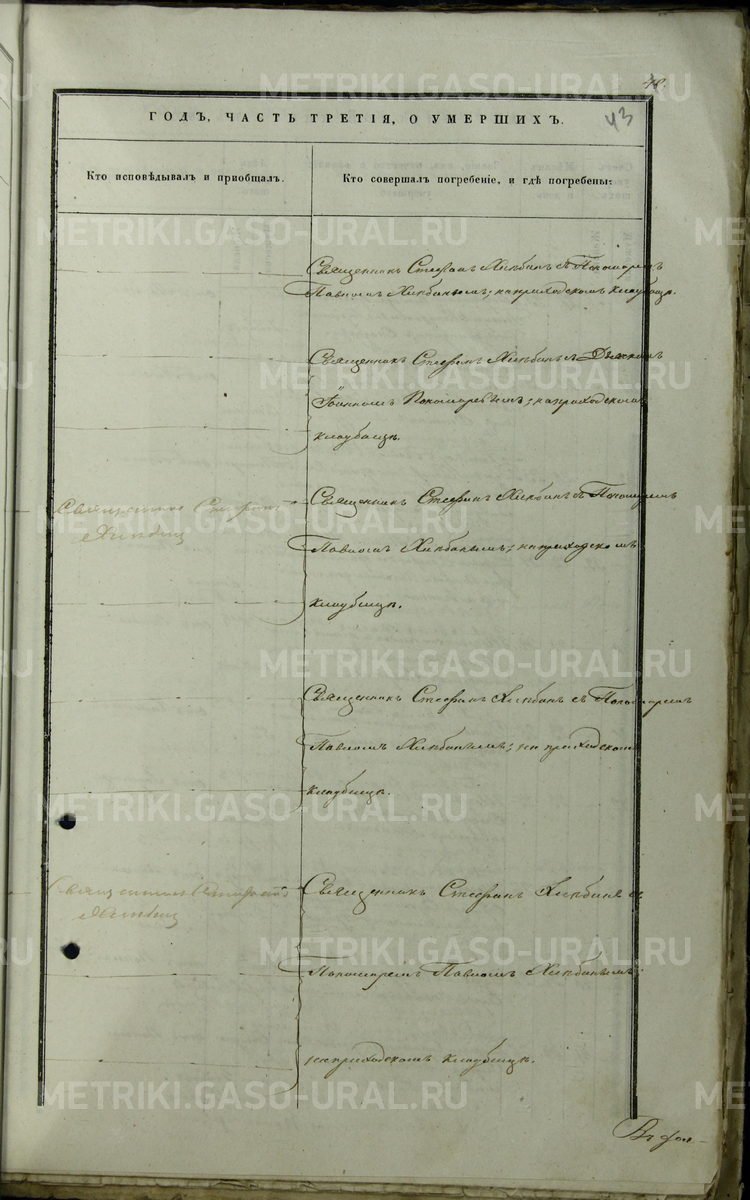 48.
43
ГОДЪ, ЧАСТЬ ТРЕТІЯ, О УМЕРШИХЪ.
Кто исповѣдывалъ и пріобщалъ.
Кто совершалъ погребеніе, и гдѣ погребены:
Священникъ Стефанъ Хлѣбинъ съ Пономаремъ
Павломъ Хлѣбинымъ; на приходскомъ кладбищѣ.
Священникъ Стефанъ Хлѣбинъ съ
Іоанномъ Пономаревымъ; на приходскомъ
кладбищѣ.
Священникъ Стефанъ
Хлѣбинъ
Священникъ Стефанъ Хлѣбинъ съ Пономаремъ
Павломъ Хлѣбинымъ; на приходскомъ
кладбищѣ.
Священникъ Стефанъ Хлѣбинъ съ Пономаремъ
Павломъ Хлѣбинымъ; на приходскомъ
кладбищѣ.
Священникъ Стефанъ
Хлѣбинъ
Священникъ Стефанъ Хлѣбинъ съ
Пономаремъ Павломъ Хлѣбинымъ;
на приходскомъ кладбищѣ.
METRIKI.GASO-URAL.RU